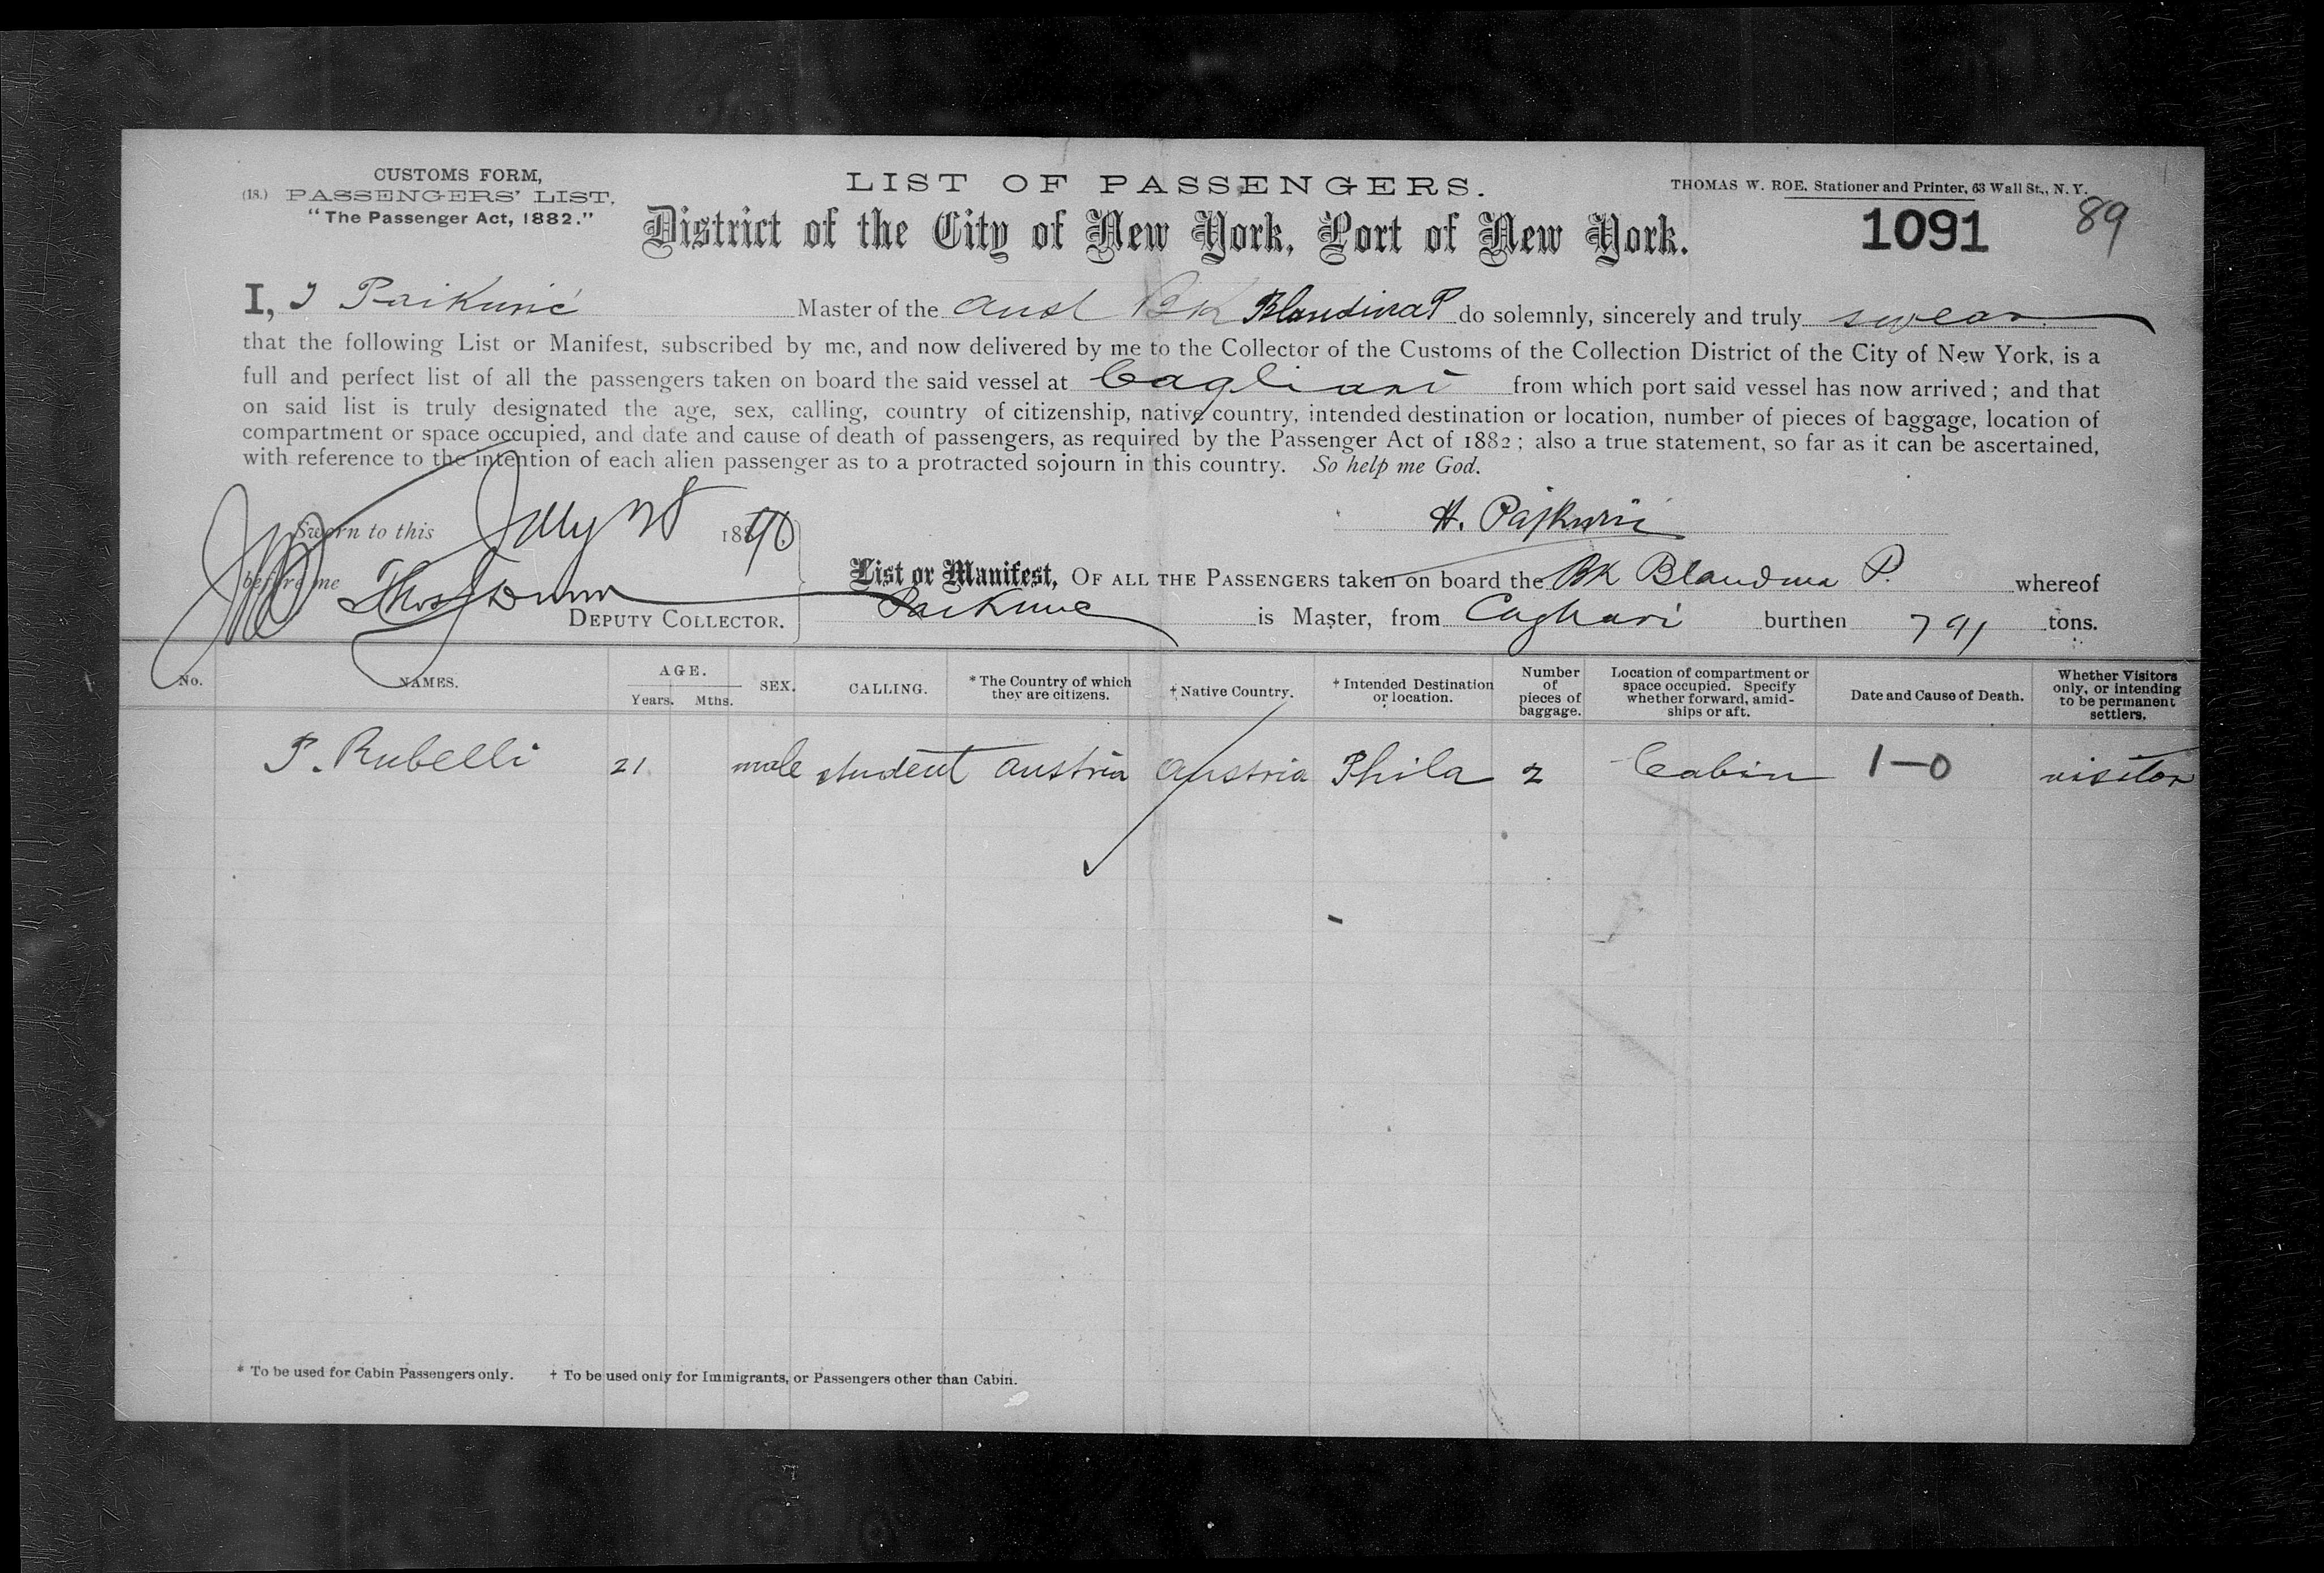 CUSTOMS FORM,
(18.) PASSENGERS' LIST,
"The Passenger Act, 1882."
LIST OF PASSENGERS.
District of the City of New York, Port of New York.
THOMAS W. ROE, Stationer and Printer, 63 Wall St., N. Y.
1091 89
I, Master of the Aust Bk Blandina P do solemnly, sincerely and truly swear
that the following List or Manifest, subscribed by me, and now delivered by me to the Collector of the Customs of the Collection District of the City of New York, is a
full and perfect list of all the passengers taken on board the said vessel at Cagliari from which port said vessel has now arrived; and that
on said list is truly designated the age, sex, calling, country of citizenship, native country, intended destination or location, number of pieces of baggage, location of
compartment or space occupied, and date and cause of death of passengers, as required by the Passenger Act of 1882; also a true statement, so far as it can be ascertained,
with reference to the intention of each alien passenger as to a protracted sojourn in this country. So help me God.
Sworn to this July 28 1890
before me Thos
DEPUTY COLLECTOR.
H.
List or Manifest, OF ALL THE PASSENGERS taken on board the Bk Blandina P. whereof
is Master, from Cagliari burthen 791 tons.
No. NAMES. AGE. Years. Mths. SEX. CALLING. * The Country of which they are citizens. † Native Country. † Intended Destination or location. Number of pieces of baggage. Location of compartment or space occupied. Specify whether forward, amidships or aft. Date and Cause of Death. Whether Visitors only, or intending to be permanent settlers.
P. Rubelli 21 male student Austria Austria Phila 2 Cabin 1-0 visitor
* To be used for Cabin Passengers only. † To be used only for Immigrants, or Passengers other than Cabin.